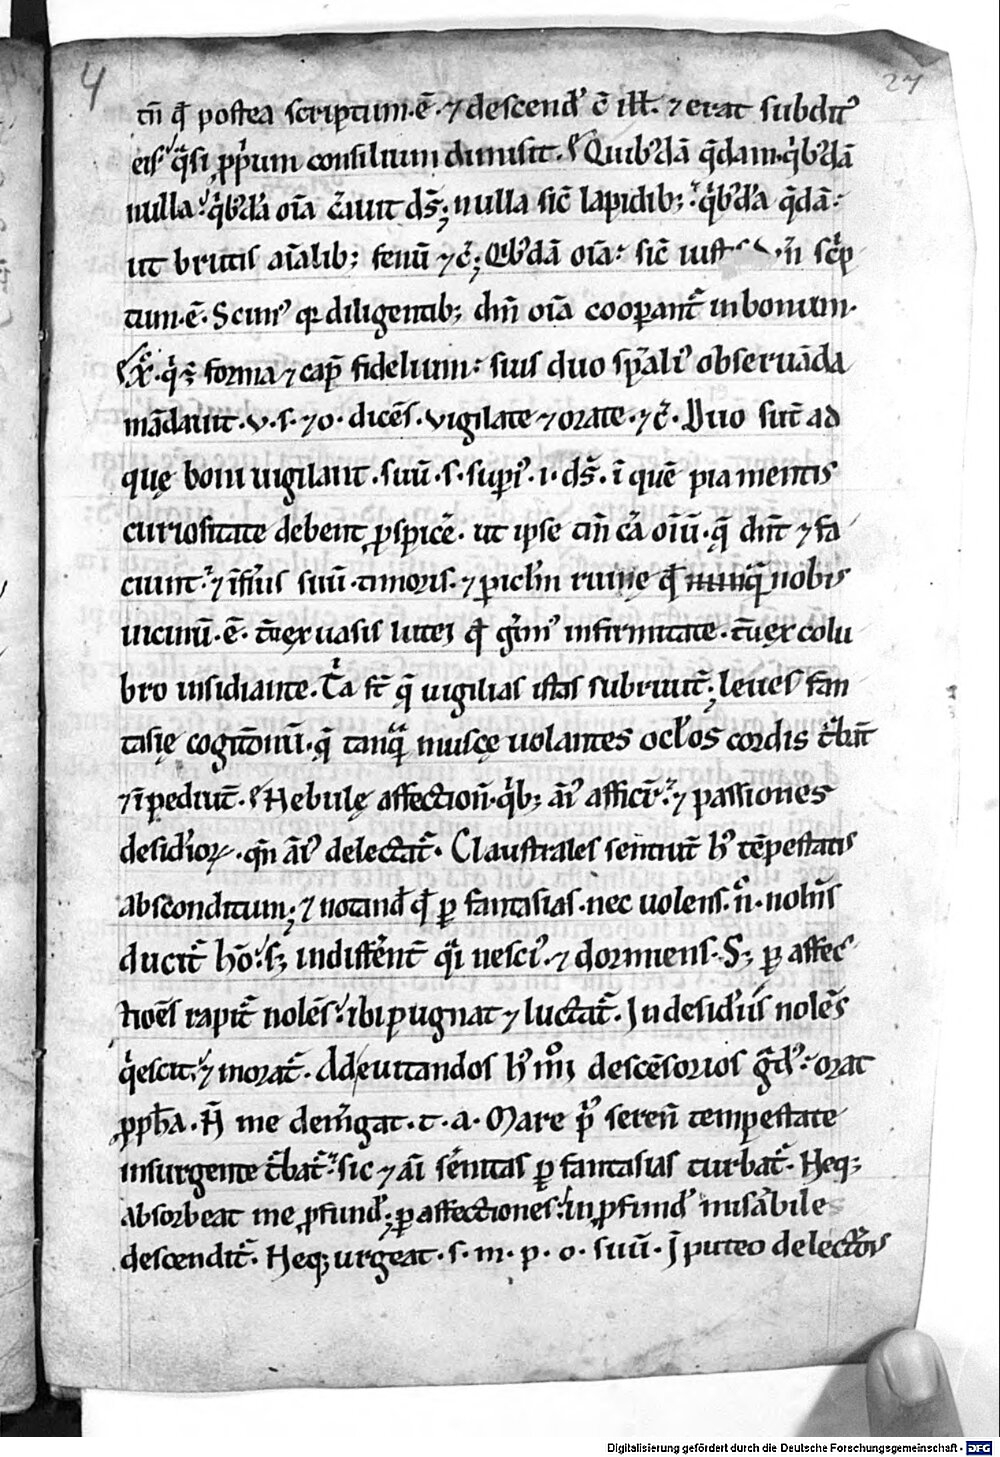 4 27
tn̄ qđ postea scriptum·ē· ⁊ descend' c̄ ill̄· ⁊ erat subdit'
eis· q̄si ꝓpͥum consilium dimisit· Quib'dā q̄dam·qͥb'dā
nulla· qͥb'dā oīa c̄auit ds̄; nulla sic̄ lapidib; qͥb'dā q̄dā·
ut brutis aīalib; fenū ⁊c̄; Qͥb'dā oīa· sic̄ iust n̄ sc̄p
tum·ē· Scim' qr diligentib; dn̄i oīa cooꝑant̄ in bonum·
xp̄c·qͥ ē forma ⁊ cap̄ fidelium· suis duo sp̄aliť obseruāda
mādauit·v·s·⁊o· dicēs· vigilate ⁊ orate·⁊c̄· Duo sūt ad
quę boni uigilant·suū·s·supi'·i·ds̄·ī quē pia mentis
curiositate debent ꝑspic̄e· ut ipse tīn c̄a oiū·q̄ dn̄t ⁊ fa
ciunt· ⁊ īfͥius suū·timoris·⁊ ꝑicl̄m ruinę qđ nunq̄ nobis
uicinū·ē· tūex uasis lutei qđ gͥm' infirmitate·tūex colu
bro insidiante· Tͥa st̄ q̄ uigilias istas subruūt; leues fan
tasię cogitōnū·q̄ tanqͣ muscę uolantes oclos cordis t̄bāt
⁊ īpediūt· Nebulę affectionū·qͥb; ai' afficiť· ⁊ passiones
desid'ioꝝ·qn̄ ai' delectat̄· Claustrales sentiūt h' tēpestatis
absconditum; ⁊ notand qđ ꝑ fantasias·nec uolens·n̄·nolēs
ducit̄ hō· s; indiffēnt̄ qͣi nesci'·⁊ dormiens· S; ꝑ affec
tiōes rapit̄ nolēs· ibi pugnat ⁊ luctat̄· In desid'iis nolēs
qͥescit· ⁊ morat̄· Ad euitandos h' mōi descēsorios gͣd'· orat
ꝓph̄a· N̄ me dem̄gat·t·a· Mare pͥ' serenū tempestate
insurgente t̄bat̄· sic ⁊ aī s̄enitas ꝑ fantasias turbat̄· Neq;
absorbeat me ꝓfund'; ꝑ affectiones· in ꝓfund' misāabile
descendit̄· Neq; urgeat·s·m·p·o·suū· I puteo delectōis
Digitalisierung gefördert durch die Deutsche Forschungsgemeinschaft - DFG